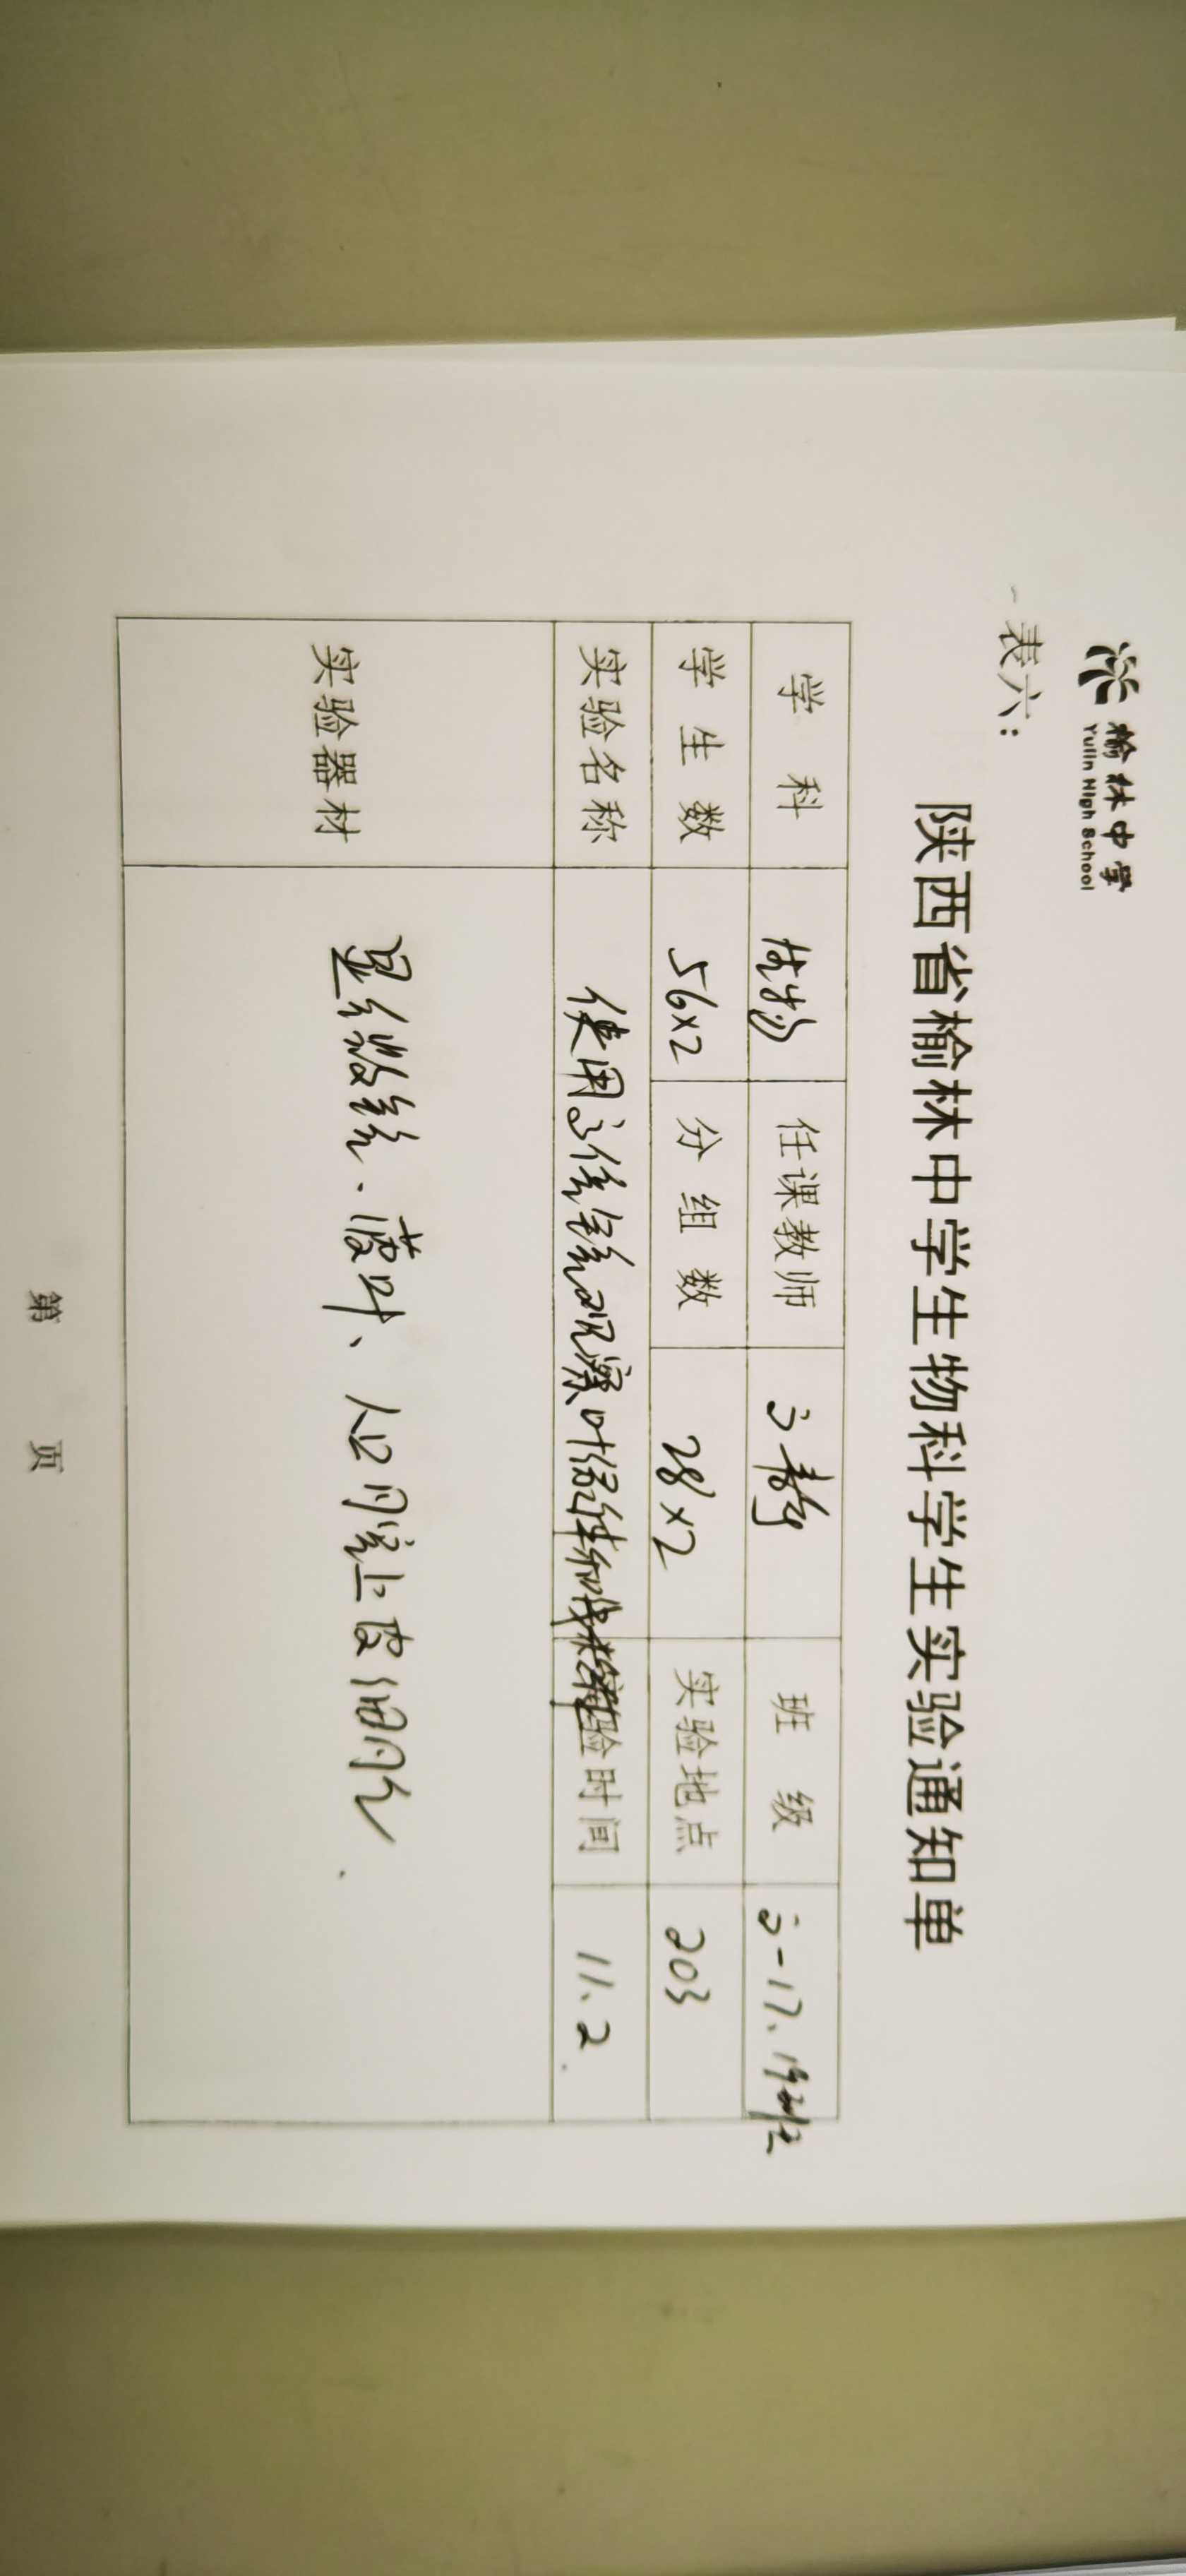 榆林中学
Yulin High School
表六：
陕西省榆林中学生物科学生实验通知单
学科 生物 任课教师 静 班级 高一17、19班
学生数 56×2 分组数 28×2 实验地点 203
实验名称 使用高倍镜观察叶绿体和线粒体 实验时间 11.2
实验器材 显微镜、菠叶、人口腔上皮细胞
第 页